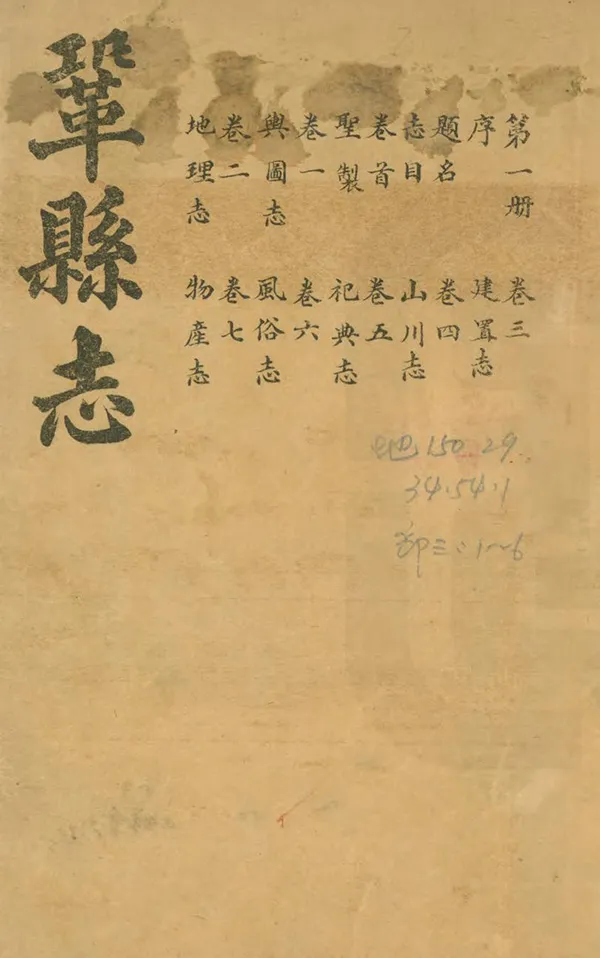 鞏縣志
第一册
序
題名
志目
卷首
聖製
卷一
輿圖志
卷二
地理志
卷三
建置志
卷四
山川志
卷五
祀典志
卷六
風俗志
卷七
物産志
地150.29
34.54.1
三:1~6